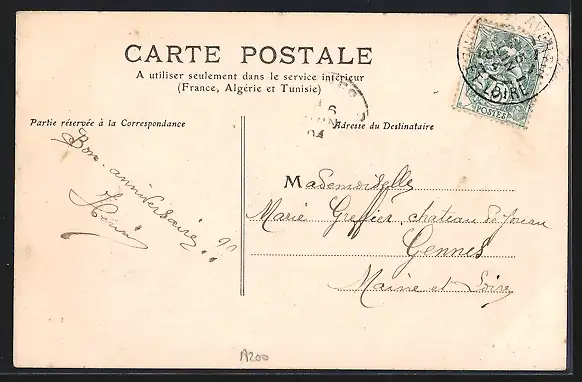 CARTE POSTALE
A utiliser seulement dans le service intérieur
(France, Algérie et Tunisie)
Partie réservée à la Correspondance
Adresse du Destinataire
Bon anniversaire
Mademoiselle
Marie Greffier, château de
Gennes
Maine et Loire
LOIRE
POSTES
A200